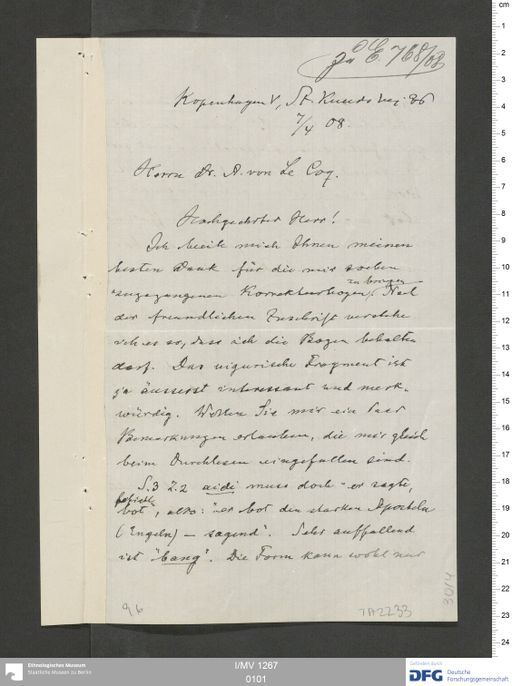 Zu E. 768/08
Kopenhagen V, St. Knuds Vej 36
7/4 08.
Herrn Dr. A. von Le Coq.
Hochgeehrter Herr!
Ich beeile mich Ihnen meinen
besten Dank für die mir soeben
zugegangenen Korrekturbogen zu bringen.
der freundlichen Zuschrift verstehe
ich es so, dass ich die Bogen behalten
darf. Das uigurische Fragment ist
ja äusserst interessant und merk-
würdig. Wollen Sie mir ein Paar
Bemerkungen erlauben, die mir gleich
beim Durchlesen eingefallen sind.
S. 3 Z. 2 aidi muss doch "er sagte,
befiehlt
bot", also: "er bot den starken Aposteln
(Engeln) — sagend". Sehr auffallend
ist "bang". Die Form kann wohl nur
96
TA2233
3014
Ethnologisches Museum
Staatliche Museen zu Berlin
I/MV 1267
0101
Gefördert durch
DFG Deutsche
Forschungsgemeinschaft
cm
1
2
3
4
5
6
7
8
9
10
11
12
13
14
15
16
17
18
19
20
21
22
23
24